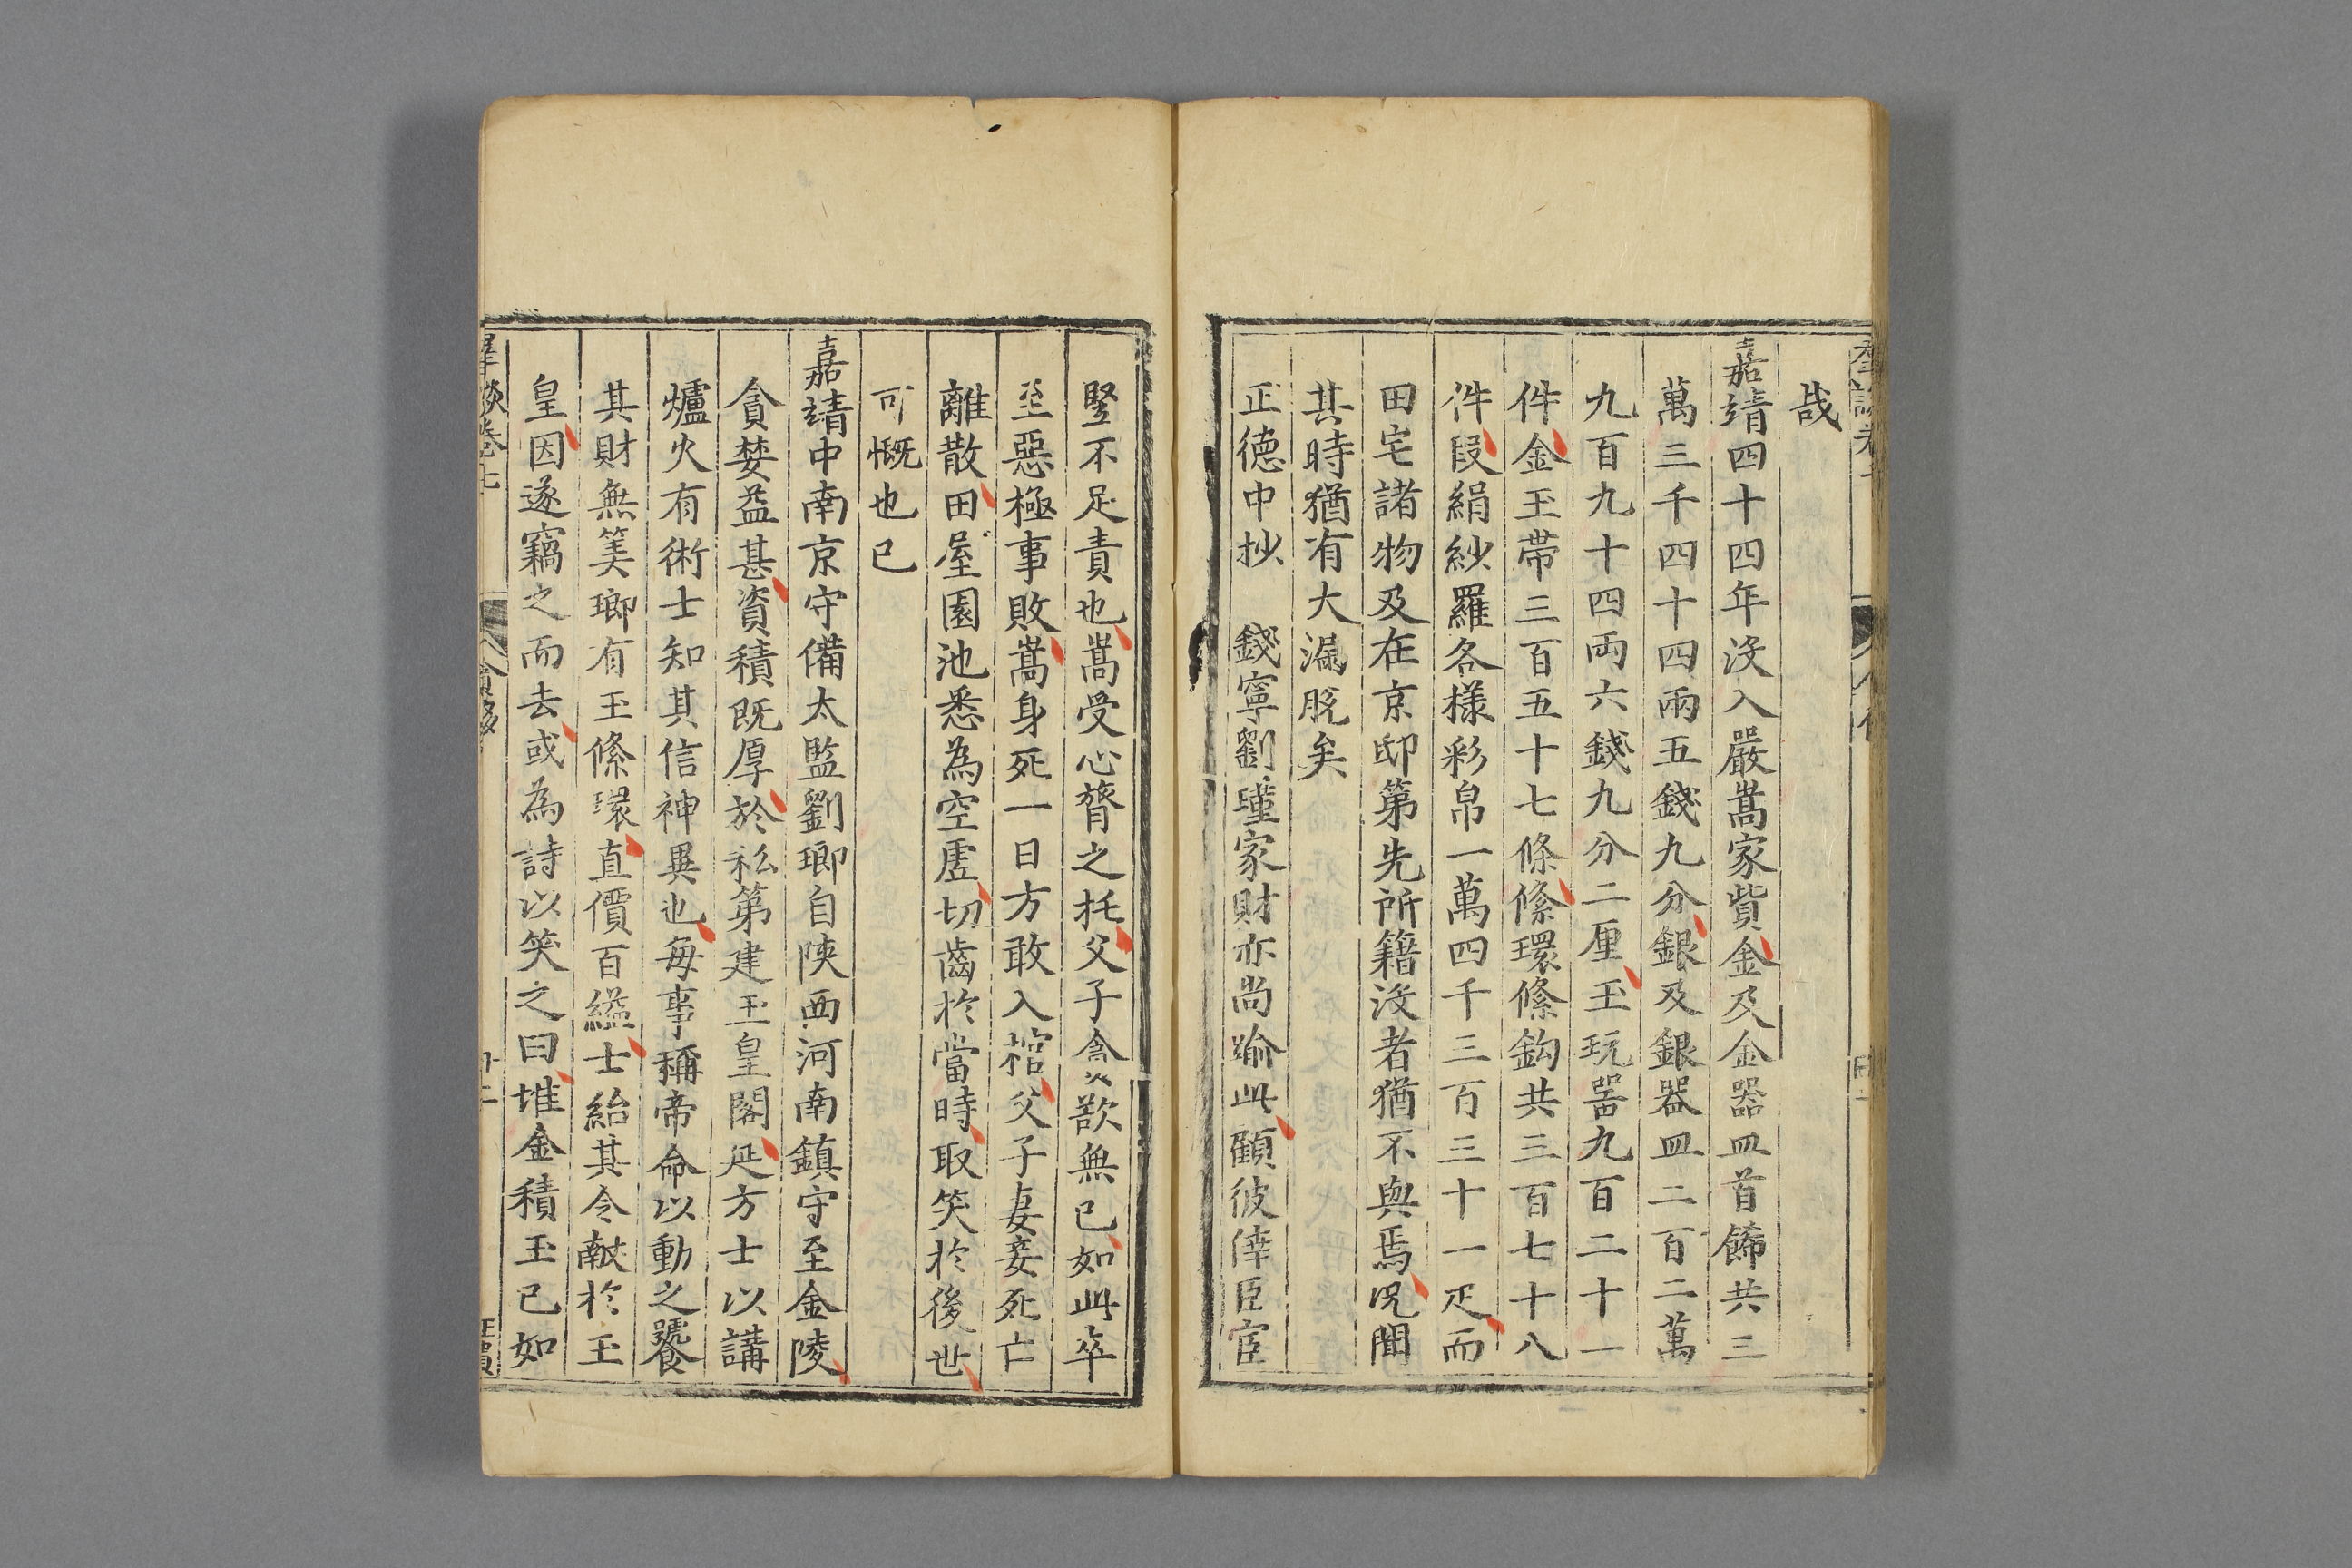 哉
嘉靖四十四年沒入嚴嵩家貲金及金器皿首餙共三
萬三千四十四兩五錢九分銀及銀器皿二百二萬
九百九十四両六錢九分二厘玉玩噐九百二十一
件金玉帶三百五十七條絛環絛鈎共三百七十八
件段絹紗羅各樣彩帛一萬四千三百三十一疋而
田宅諸物及在京邸第先所籍沒者猶不與焉况聞
其時猶有大漏脫矣
正德中抄 錢寧劉瑾家財亦尚踰此顧彼倖臣宦
竪不足責也嵩受心膂之托父子貪歡無已如此卒
至惡極事敗嵩身死一日方敢入棺父子妻妾死亡
離散田屋園池悉為空虗切齒於當時取笑於後世
可慨也已
嘉靖中南京守備太監劉瑯自陝西河南鎮守至金陵
貪婪益甚資積既厚於私第建玉皇閣延方士以講
爐火有術士知其信神異也每事稱帝命以動之饕
其財無筭瑯有玉絛環直價百縊士紿其令献於玉
皇因遂竊之而去或為詩以笑之曰堆金積玉已如
羣談卷七